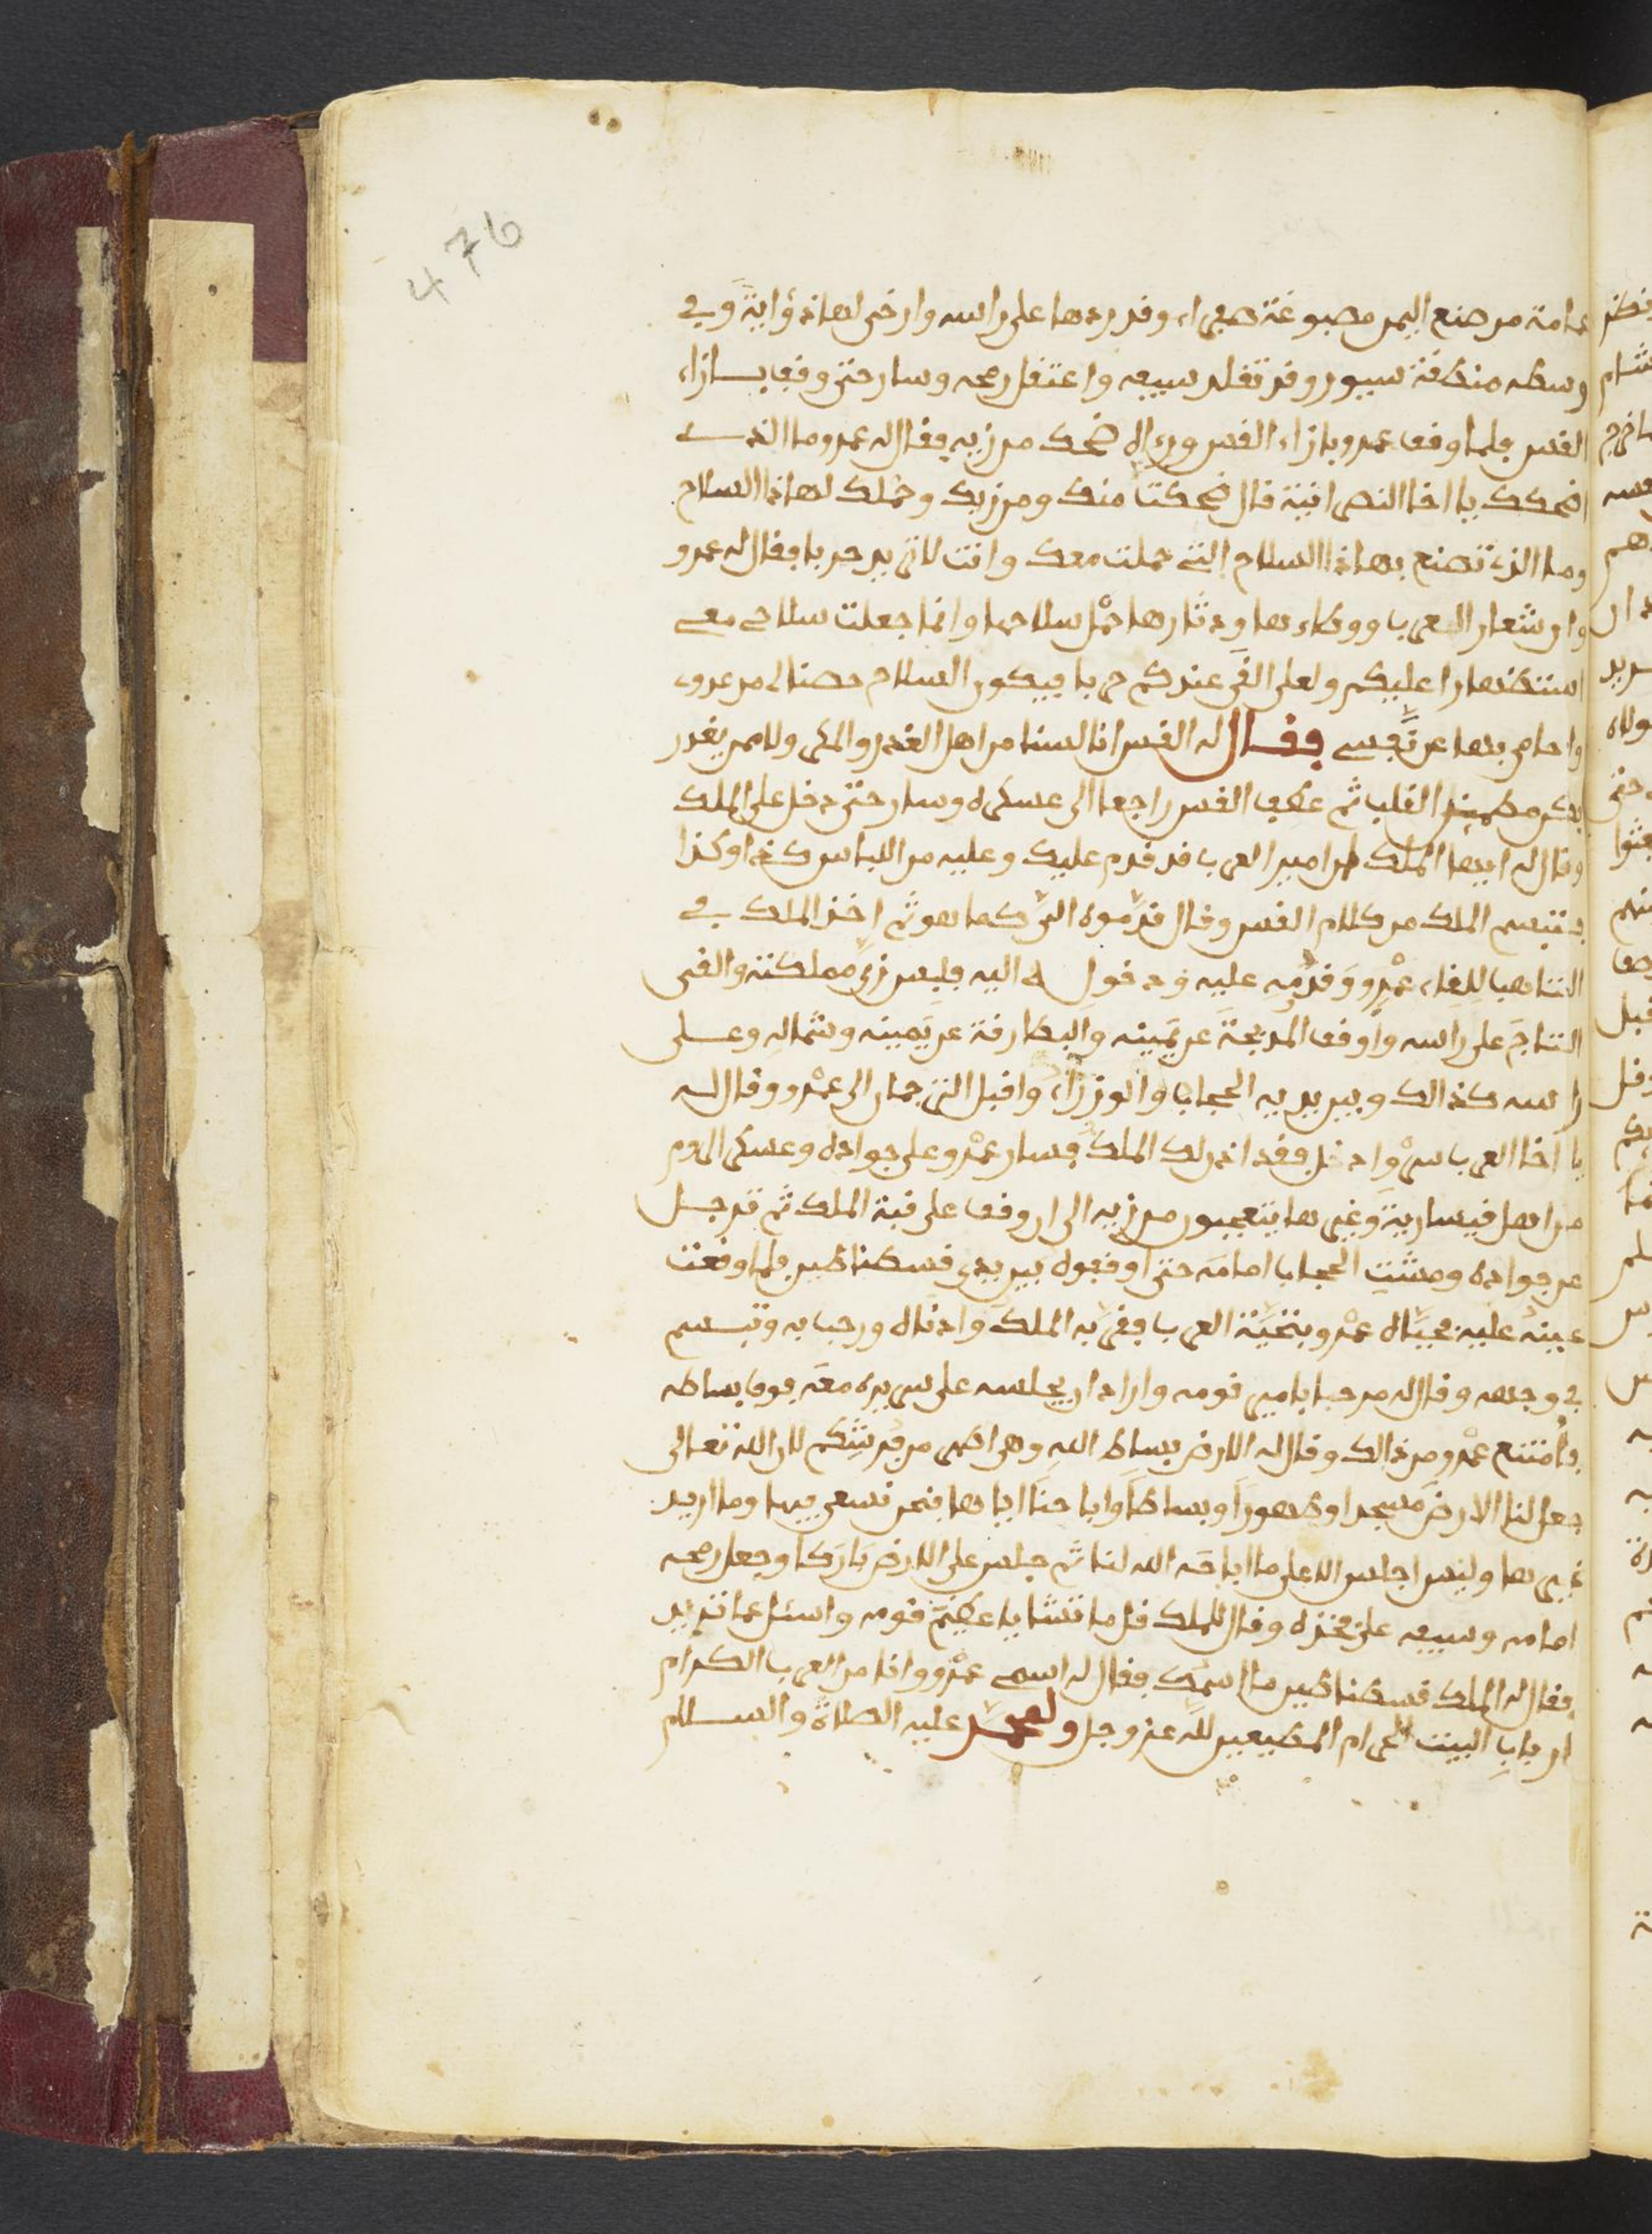 476
عمامة من صنع اليمن مصبوغة صفراء وقد ردها على راسه وارخى لها ذؤابة وفي
وسطه منطقة سيور وقد تقلد سيفه واعتقل رمحه وسار حتى وقف بازاء
القس فلما وقف عمرو بازاء القس ورءاه ضحك من زيه فقال له عمرو ما الذي
اضحكك يا اخا النصرانية قال ضحكت منك ومن زيك وحملك لهاذا السلاح
وما الذي تصنع بهاذا السلاح التي حملت معك وانت لا تريد حربا فقال له عمرو
وان شعار العرب ووطاءها ودثارها حمل سلاحها وانما جعلت سلاحي معي
استظهارا عليكم ولعلى القى عندكم حربا فيكون السلاح حصنا لي من عدوي
واحامي بها عن نفسي فقال له القس انا لسنا من اهل الغدر والمكر ولا ممن يغدر
فكن مطمئن القلب ثم عطف القس راجعا الى عسكره وسار حتى دخل على الملك
وقال له ايها الملك ان امير العرب قد قدم عليك وعليه من اللباس كذا وكذا
فتبسم الملك من كلام القس وقال قدموه الي كما هو ثم اخذ الملك في
التاهب للقاء عمرو وقدمه عليه ودخوله اليه فلبس زي مملكته والقى
التاج على راسه واوقف المدبجة عن يمينه والبطارقة عن يمينه وشماله وعلى
راسه كذالك وبين يديه الحجاب والوزراء واقبل الترجمان الى عمرو وقال له
يا اخا العرب سر وادخل فقد اذن لك الملك فسار عمرو على جواده وعسكر الروم
من اهل قيسارية وغيرها يتعجبون من زيه الى ان وقف على قبة الملك ثم ترجل
عن جواده ومشت الحجاب امامه حتى اوقفوه بين يدي قسطنطين فلما وقعت
عينه عليه حياه عمرو بتحية العرب فقربه الملك وادناه ورحب به وتبسم
في وجهه وقال له مرحبا بامير قومه واراد ان يجلسه على سريره معه فوق بساطه
فامتنع عمرو من ذالك وقال له الارض بساط الله وهي اطهر من فرشكم لان الله تعالى
جعل لنا الارض مسجدا وطهورا وبساطا وابا حنا اياها فنحن نسعى فيها وما اريد
غيرها وليس اجلس الا على ما اباحه الله لنا ثم جلس على الارض باركا وجعل رمحه
امامه وسيفه على فخذه وقال للملك قل ما تشا يا عظيم قومه واسئل عما تريد
فقال له الملك قسطنطين ما اسمك فقال له اسمي عمرو وانا من العرب الكرام
ارباب البيت الحرام المطيعين لله عز وجل ولمحمد عليه الصلاة والسلام